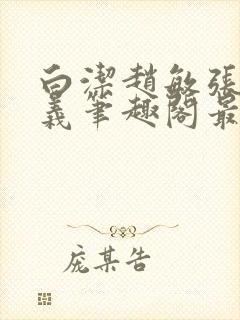 白潔趙敏張
義筆趣閣最
庞某告